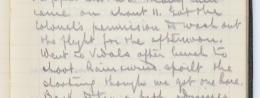 came on about 11. Got the
Colonel's permission to wash out
the flight for the afternoon.
Went to after lunch to
shoot. Rain & wind spoilt the
shooting though we got one hare.
Back